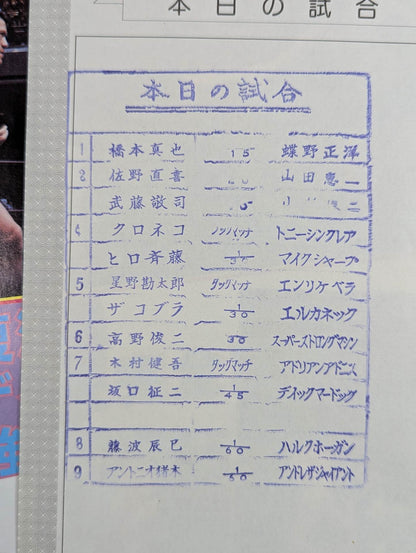 本日の試合
本日の試合
1 橋本真也 15 蝶野正洋
2 佐野直喜 山田恵一
武藤敬司 5
4 クロネコ タッグマッチ トニーシンクレア
ヒロ斉藤 マイクシャープ
5 星野勘太郎 タッグマッチ エンリケベラ
ザコブラ 1/30 エルカネック
6 高野俊二 30 スーパーストロングマシン
7 木村健吾 タッグマッチ アドリアンアドニス
坂口征二 1/45 デイックマードック
8 藤波辰巳 1/60 ハルクホーガン
9 アントニオ猪木 アンドレザジャイアント